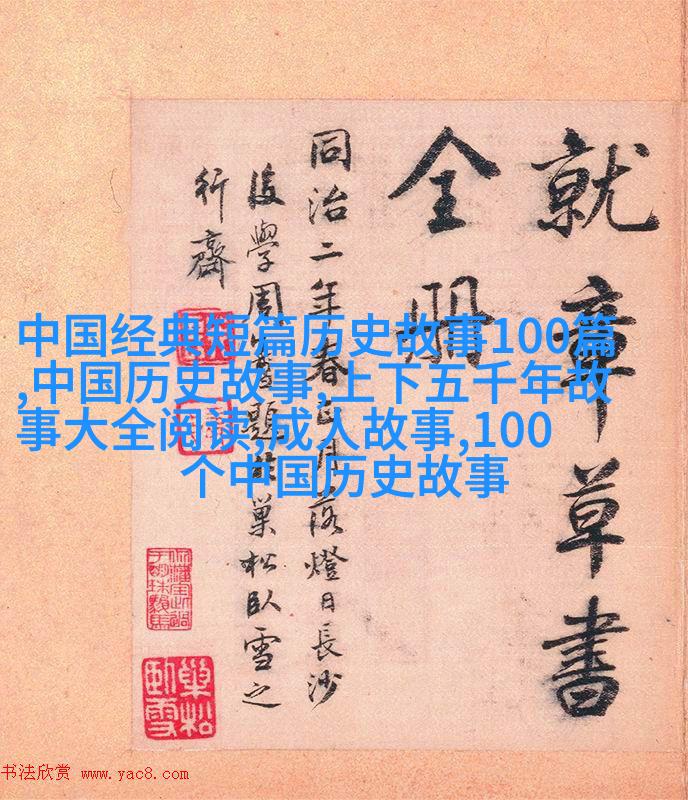 就章草書
全
同治二年春正月落燈日長沙
後學周題於巢松臥雪之
行齋
中国经典短篇历史故事100篇
,中国历史故事,上下五千年故
事大全阅读,成人故事,100
个中国历史故事
巢松
臥雪
书法欣赏 www.yac8.com